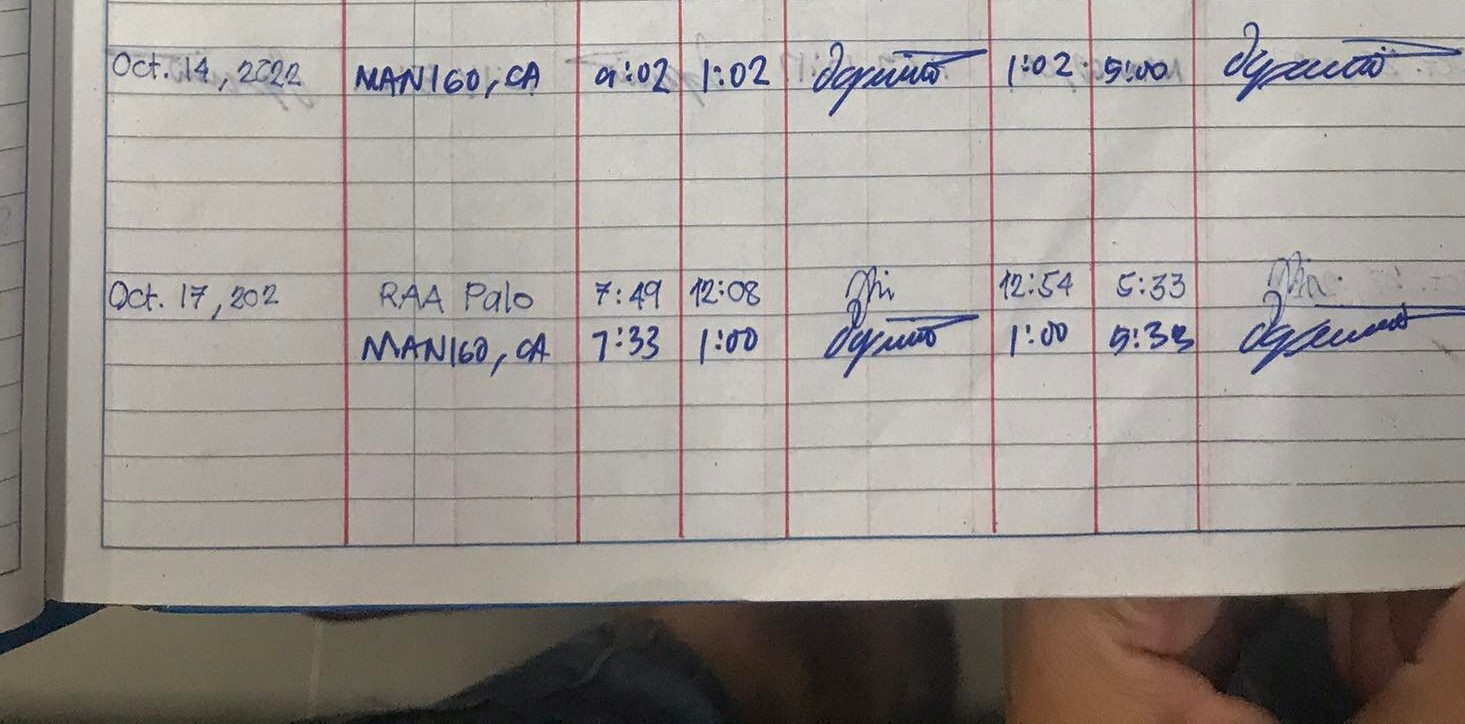 Oct. 14, 2022 MANIGO, CA 9:02 1:02 1:02 5:00
Oct. 17, 202 RAA Palo 7:49 12:08 12:54 5:33
MANIGO, CA 7:33 1:00 1:00 5:33